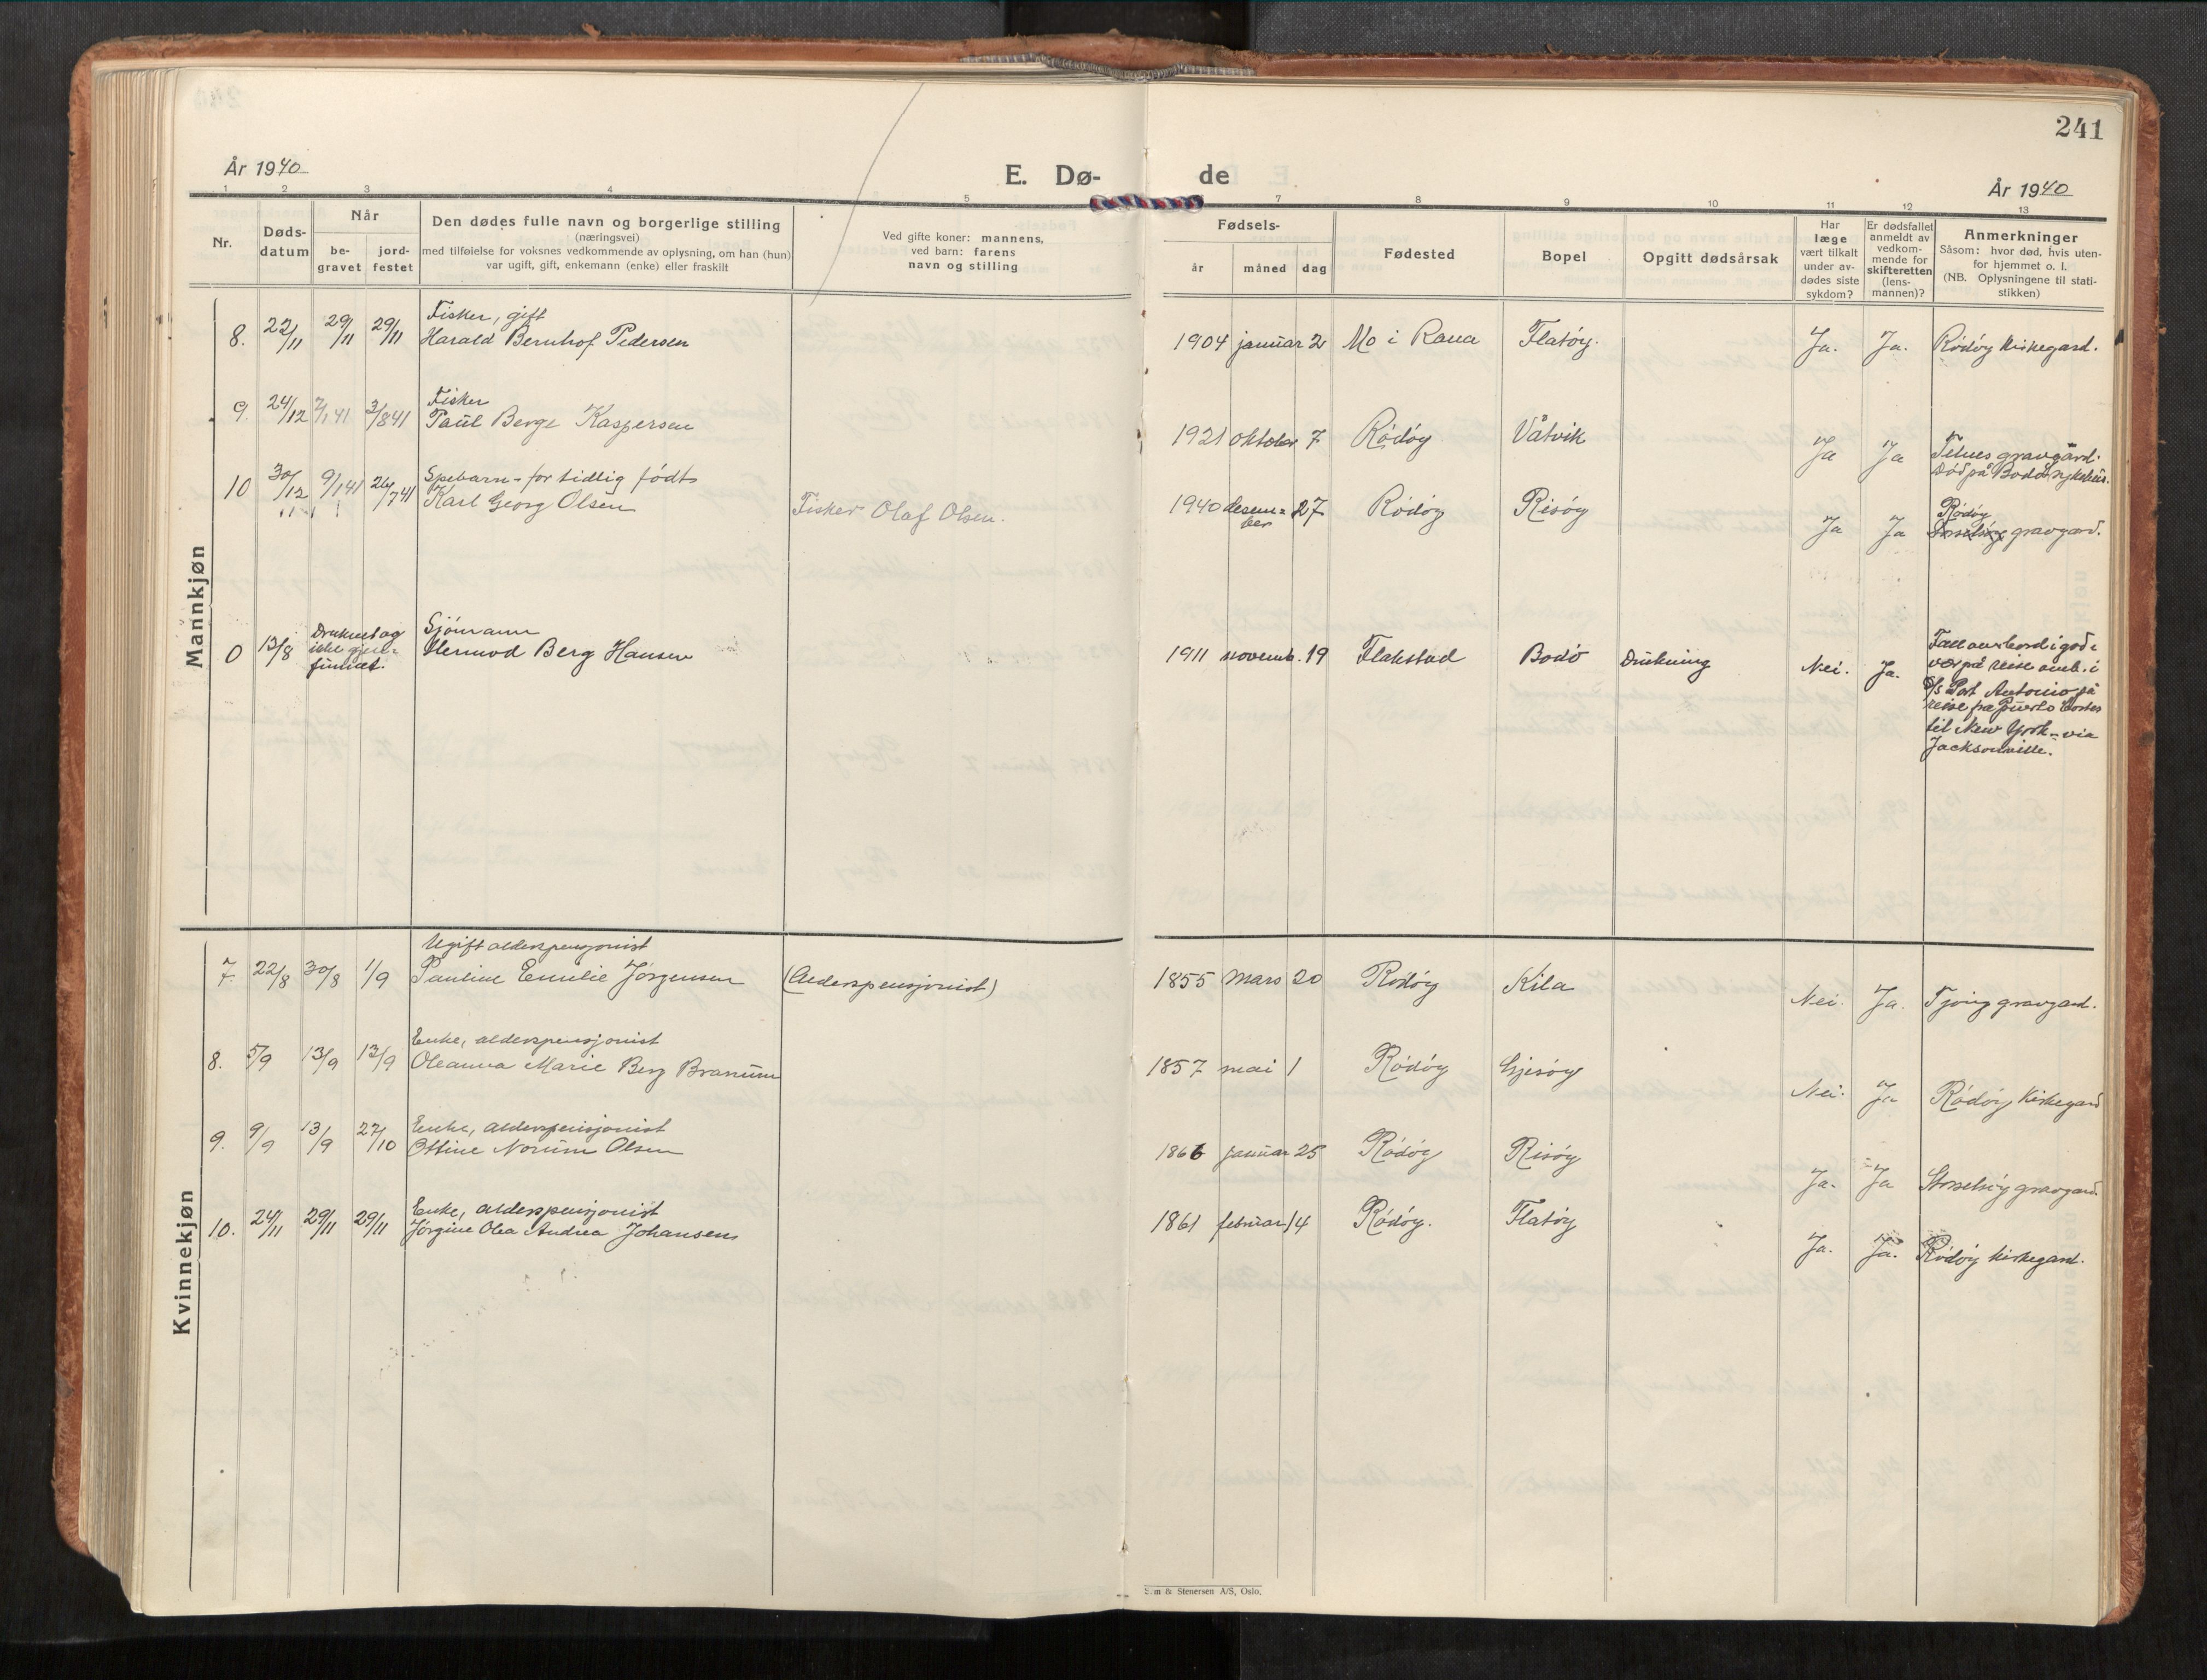 241
År 1940
E. Dø- de
År 1940
1 2 3 4 5 7 8 9 10 11 12 13
Nr.
Døds-
datum
Når
be-
gravet
jord-
festet
Den dødes fulle navn og borgerlige stilling
(næringsvei)
med tilføielse for voksnes vedkommende av oplysning, om han (hun)
var ugift, gift, enkemann (enke) eller fraskilt
Ved gifte koner: mannens,
ved barn: farens
navn og stilling
Fødsels-
år måned dag
Fødested
Bopel
Opgitt dødsårsak
Har
læge
vært tilkalt
under av-
dødes siste
sykdom?
Er dødsfallet
anmeldt av
vedkom-
mende for
skifteretten
(lens-
mannen)?
Anmerkninger
Såsom: hvor død, hvis uten-
for hjemmet o. l.
(NB. Oplysningene til stati-
stikken)
Mannkjøn
Fisker, gift
8. 22/11 29/11 29/11 Harald Bernhof Pedersen 1904 januar 2 Mo i Rana Flatöy. Ja. Ja. Rödöy kirkegard.
Fisker
9. 24/12 7/1 41 3/8 41 Paul Berge Kaspersen 1921 oktober 7 Rödöy Våtvik Ja Ja
Telnes gravgård.
Död på Bodö sykehus.
Spebarn - for tidlig födt
10 30/12 9/1 41 26/7 41 Karl Georg Olsen Fisker Olaf Olsen. 1940 desem=
ber 27 Rödöy Risöy Ja Ja
Rödöy
Storselsöy gravgard.
Druknet og
ikke gjen-
funnet.
Sjömann
0 13/8 Hermod Berg Hansen 1911 novemb. 19 Flakstad Bodö Drukning Nei. Ja.
Fall overbord i godt
vær på reise omb. i
D/S Port Antonio på
reise fra Puerto Cortes
til New York - via
Jacksonville.
Kvinnekjøn
Ugift alderspensjonist
7. 22/8 30/8 1/9 Pauline Emilie Jörgensen (Alderspensjonist) 1855 mars 20 Rödöy Kila Nei. Ja. Tjong gravgard.
Enke, alderspensjonist
8. 5/9 13/9 13/9 Oleanna Marie Berg Branum 1857 mai 1 Rödöy Gjesöy Nei. Ja Rödöy Kirkegard
Enke, alderspensjonist
9. 9/9 13/9 27/10 Ottine Norum Olsen 1866 januar 25 Rödöy Risöy Ja. Ja Storselsöy gravgard.
Enke, alderspensjonist
10. 24/11 29/11 29/11 Jörgine Olea Andrea Johansen 1861 februar 14 Rödöy. Flatöy Ja. Ja. Rödöy kirkegard.
Sem & Stenersen A/S, Oslo.